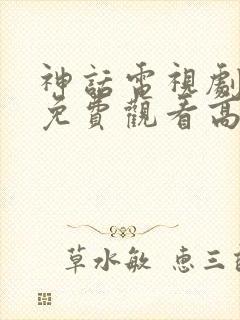 神話電視劇
免費觀看高
草水敏 惠三